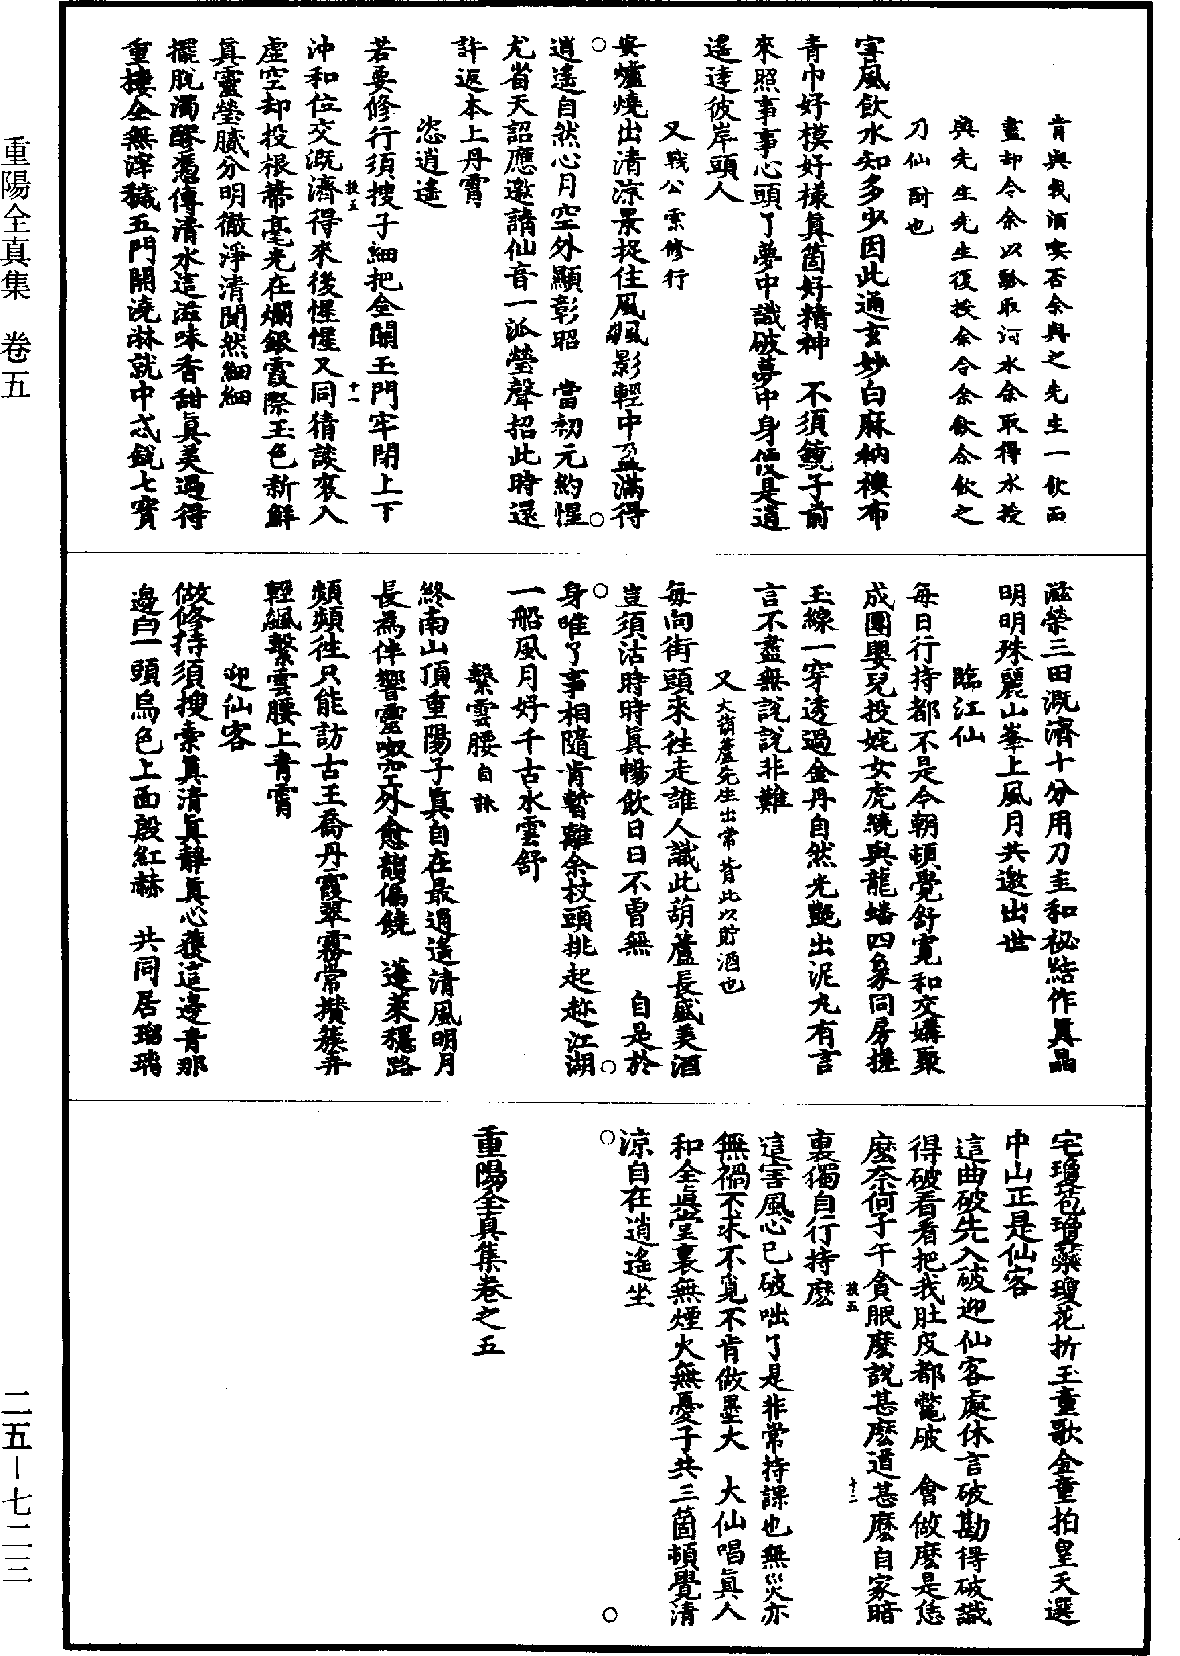 肯與我酒喫否余與之先生一飲而
盡却令余以瓢取河水余取得水授
與先生先生復授余令余飲余飲之
乃仙酎也
害風飲水知多少因此通玄妙白麻納襖布
青巾好模好樣真箇好精神　不須鏡子前
來照事事心頭了夢中識破夢中身便是逍
遙達彼岸頭人
又戰公索修行
安爐燒出清涼景捉住風颩影輕中盈滿得
逍遙自然心月空外顯彰昭　當初元約惺
尤省天詔應邀請仙音一派瑩聲招此時還
許返本上丹霄
恣逍遙
若要修行須搜子細把金關玉門牢閉上下
沖和位交溉濟得來後惺惺又同猜談裒入
虛空却投根蒂毫光在爛銀霞際玉色新鮮
真靈瑩膩分明徹淨清聞然細細
擺脫濁醪憑傳清水這滋味香甜真美過得
重樓全無滓穢五門開澆淋就中忒銳七寶
滋榮三田溉濟十分用刀圭和祕結作真晶
明明殊麗山峯上風月共邀出世
臨江仙
每日行持都不是今朝頓覺舒寬和交媾聚
成團嬰兒投姹女虎繞與龍蟠四象同房挫
玉線一穿透過金丹自然光艷出泥丸有言
言不盡無說說非難
又大葫蘆先生出常背此以貯酒也
每向街頭來往走誰人識此葫蘆長盛美酒
豈須沽時時真暢飲日日不曾無　自是於
身唯了事相隨肯暫離余杖頭挑起趂江湖
一船風月好千古水雲舒
繫雲腰自詠
終南山頂重陽子真自在最逍遙清風明月
長為伴響靈呶空外愈韻偏饒　蓬萊穩路
頻頻往只能訪古王喬丹霞翠霧常攢簇弄
輕颻繫雲腰上青霄
迎仙客
做修持須搜索真清真靜真心獲這邊青那
邊白一頭烏色上面殷紅赫　共同居瑠璃
宅瓊苞瓊蘂瓊花折玉童歌金童拍皇天選
中山正是仙客
這曲破先入破迎仙客處休言破勘得破識
得破看看把我肚皮都鼈破　會做麼是恁
麼奈何子午貪眠麼說甚麼道甚麼自家暗
裏獨自行持麼
這害風心已破咄了是非常持課也無災亦
無禍不求不覓不肯做墨大　大仙唱真人
和全真堂裏無煙火無憂子共三箇頓覺清
涼自在逍遙坐
重陽全真集卷之五
枝五
十一
枝五
十二
重陽全真集　卷五
二五－七二三